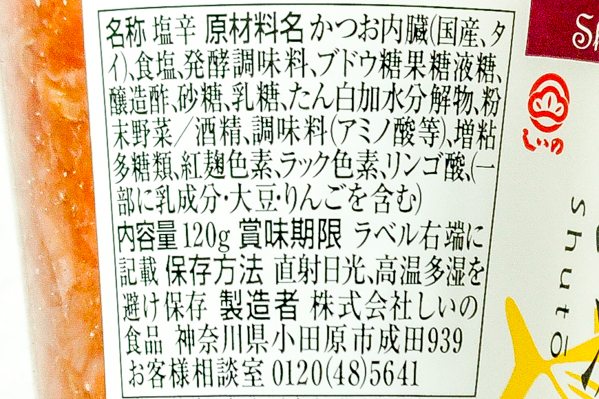 名称 塩辛 原材料名 かつお内臓(国産、タ
イ)、食塩、発酵調味料、ブドウ糖果糖液糖、
醸造酢、砂糖、乳糖、たん白加水分解物、粉
末野菜/酒精、調味料(アミノ酸等)、増粘
多糖類、紅麹色素、ラック色素、リンゴ酸、(一
部に乳成分・大豆・りんごを含む)
内容量 120g 賞味期限 ラベル右端に
記載 保存方法 直射日光、高温多湿を
避け保存 製造者 株式会社しいの
食品 神奈川県小田原市成田939
お客様相談室 0120(48)5641
しいの
Shutō